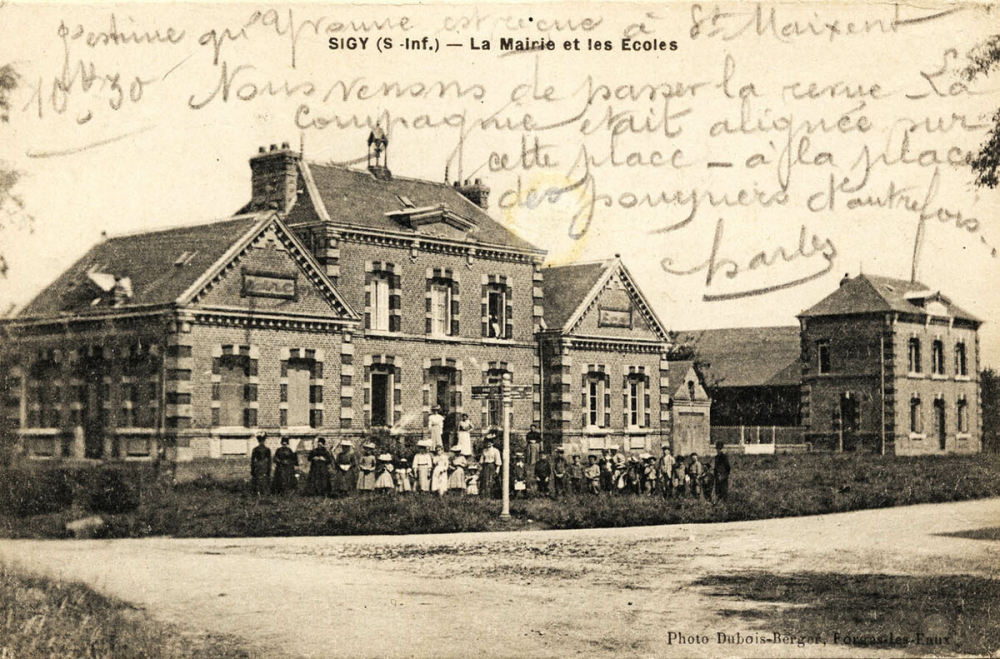 j'estime qu'Yvonne est reçue à St Maixent
SIGY (S -Inf.) — La Mairie et les Ecoles
10h30 Nous venons de passer la revue - La
Compagnie était alignée sur
cette place - à la place
des d'autrefois.
Charles
Photo Dubois-Berger, Forges-les-Eaux